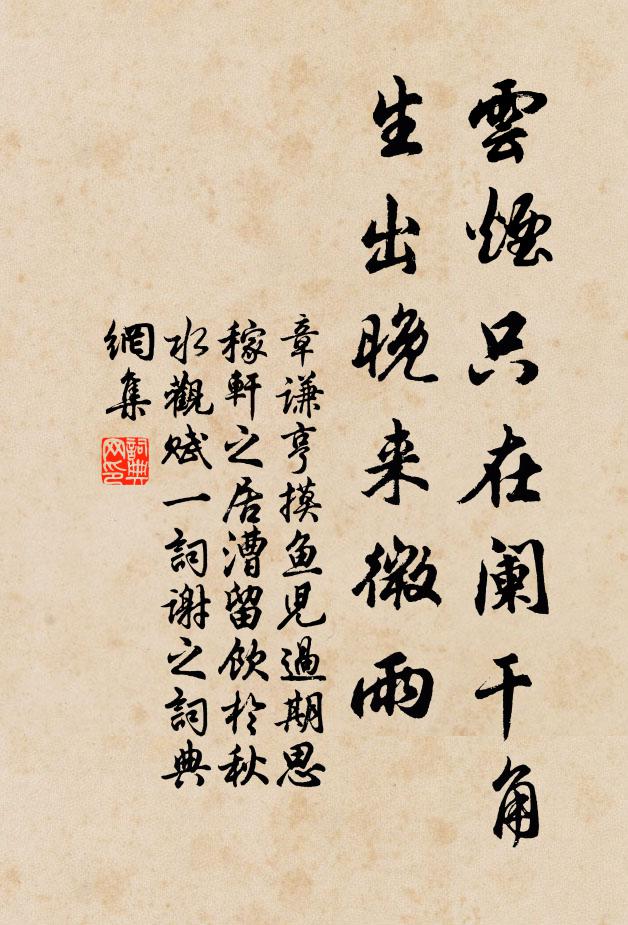 雲煙只在阑干角
生出晚来微雨
章谦亨摸鱼児過期思
稼軒之居漕留飲於秋
水觀赋一詞谢之詞典
網集
詞典网印